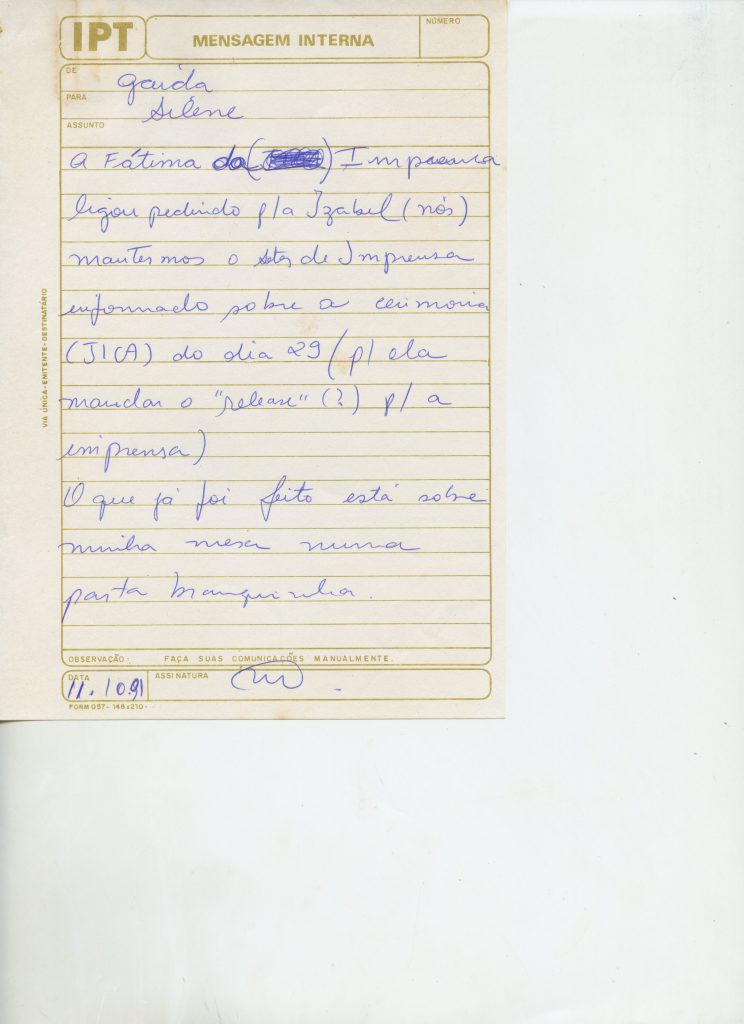 IPT MENSAGEM INTERNA NÚMERO
DE Gaida
PARA Silene
ASSUNTO
A Fátima da ( ) Imprensa
ligou pedindo p/a Izabel (nós)
mantermos o de Imprensa
informado sobre a cerimonia
(JICA) do dia 29 (p/ ela
mandar o "release" (?) p/ a
imprensa)
O que já foi feito está sobre
minha mesa numa
pasta branquinha.
OBSERVAÇÃO: FAÇA SUAS COMUNICAÇÕES MANUALMENTE.
DATA 11.10.91 ASSINATURA
FORM 057 - 148x210 -
VIA ÚNICA-EMITENTE-DESTINATÁRIO